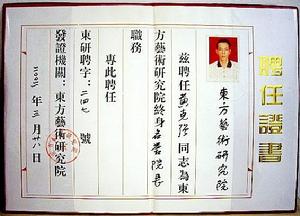 聘任證書
東方藝術研究院
茲聘任黄更强同志為東
方藝術研究院終身名誉院長
職務
專此聘任
東研聘字：二四七 號
發證機關：東方藝術研究院
年 三月廿八日